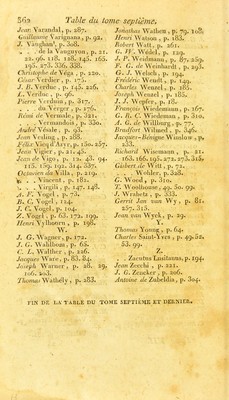 362 Table du tome septième.
Jean Varandal, p. 287.
Guillaume Varignana, p. 92.
J. Vaughan, p. 308.
» de la Vauguyon, p. 21.
22. 96. 118. 128. 145. 165.
193. 273. 336. 338.
Christophe de Véga, p. 220.
César Verdier, p. 175.
J. B. Verduc, p. 145. 226.
L. Verduc, p. 96.
Pierre Verdun, p. 317.
» du Verger, p. 176.
Rémi de Vermale, p. 321.
» Vermandois, p. 330.
André Vésale, p. 93.
Jean Vesling, p. 288.
Félix Vicq d'Azyr, p. 150. 257.
Jean Vigier, p. 21. 45.
Jean de Vigo, p. 12. 43. 94.
115. 159. 191. 314. 337.
Octavien de Villa, p. 219.
» Vincent, p. 182.
» Virgili, p. 147. 148.
A. F. Vogel, p. 72.
B. C. Vogel, 124.
J. C. Vogel, p. 104.
Z. Vogel, p. 63. 172. 199.
Henri Vylhourn, p. 196.
W.
J. G. Wagner, p. 172.
J. G. Wahlfoun, p. 65.
C. L. Walther, p. 226.
Jacques Ware, p. 83. 84.
Joseph Warner, p. 28. 29.
106. 203.
Thomas Wathely, p. 283.
Jonathas Wathen, p. 79. 108.
Henri Watson, p. 183.
Robert Watt, p. 261.
G. W. Wedel, p. 129.
J. P. Weidmann, p. 87. 259.
F. G. de Weinhardt, p. 293.
G. J. Welsch, p. 194.
Frédéric Wendt, p. 149.
Charles Wenzel, p. 186.
Joseph Wenzel, p. 185.
J. J. Wepfer, p. 18.
François Wiedemann, p. 167.
G. R. C. Wiedemann, p. 310.
J. G. de Willburg, p. 77.
Bradfort Wilmed, p. 346.
Jacques-Bénigne Winslow, p.
233.
Richard Wisemann, p. 21.
163. 165. 195. 272. 273. 315.
Gisbert de Witt, p. 72.
» Wohler, p. 328.
G. Wood, p. 310.
T. Woolhouse, 49. 50. 99.
J. Wrabetz, p. 333.
Gerrit Jan van Wy, p. 81.
257. 315.
Jean van Wyck, p. 29.
Y.
Thomas Young, p. 64.
Charles Saint-Yves, p. 49. 52.
53. 99.
Z.
» Zacutus Lusitanus, p. 194.
Jean Zecchi, p. 221.
J. G. Zencker, p. 206.
Antoine de Zubeldia, p. 304.
FIN DE LA TABLE DU TOME SEPTIÈME ET DERNIER.